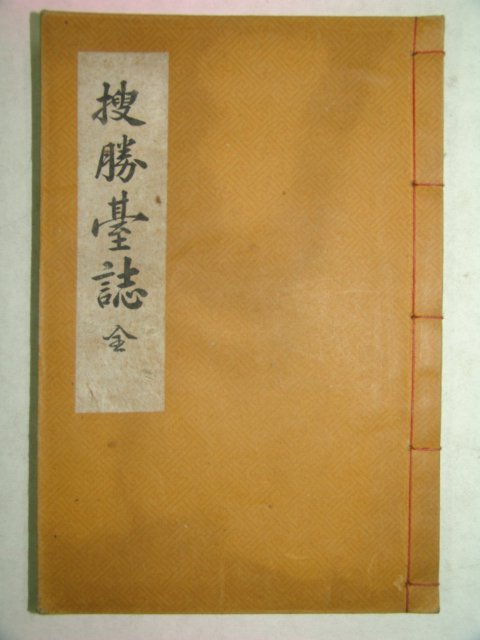 搜勝臺誌 全